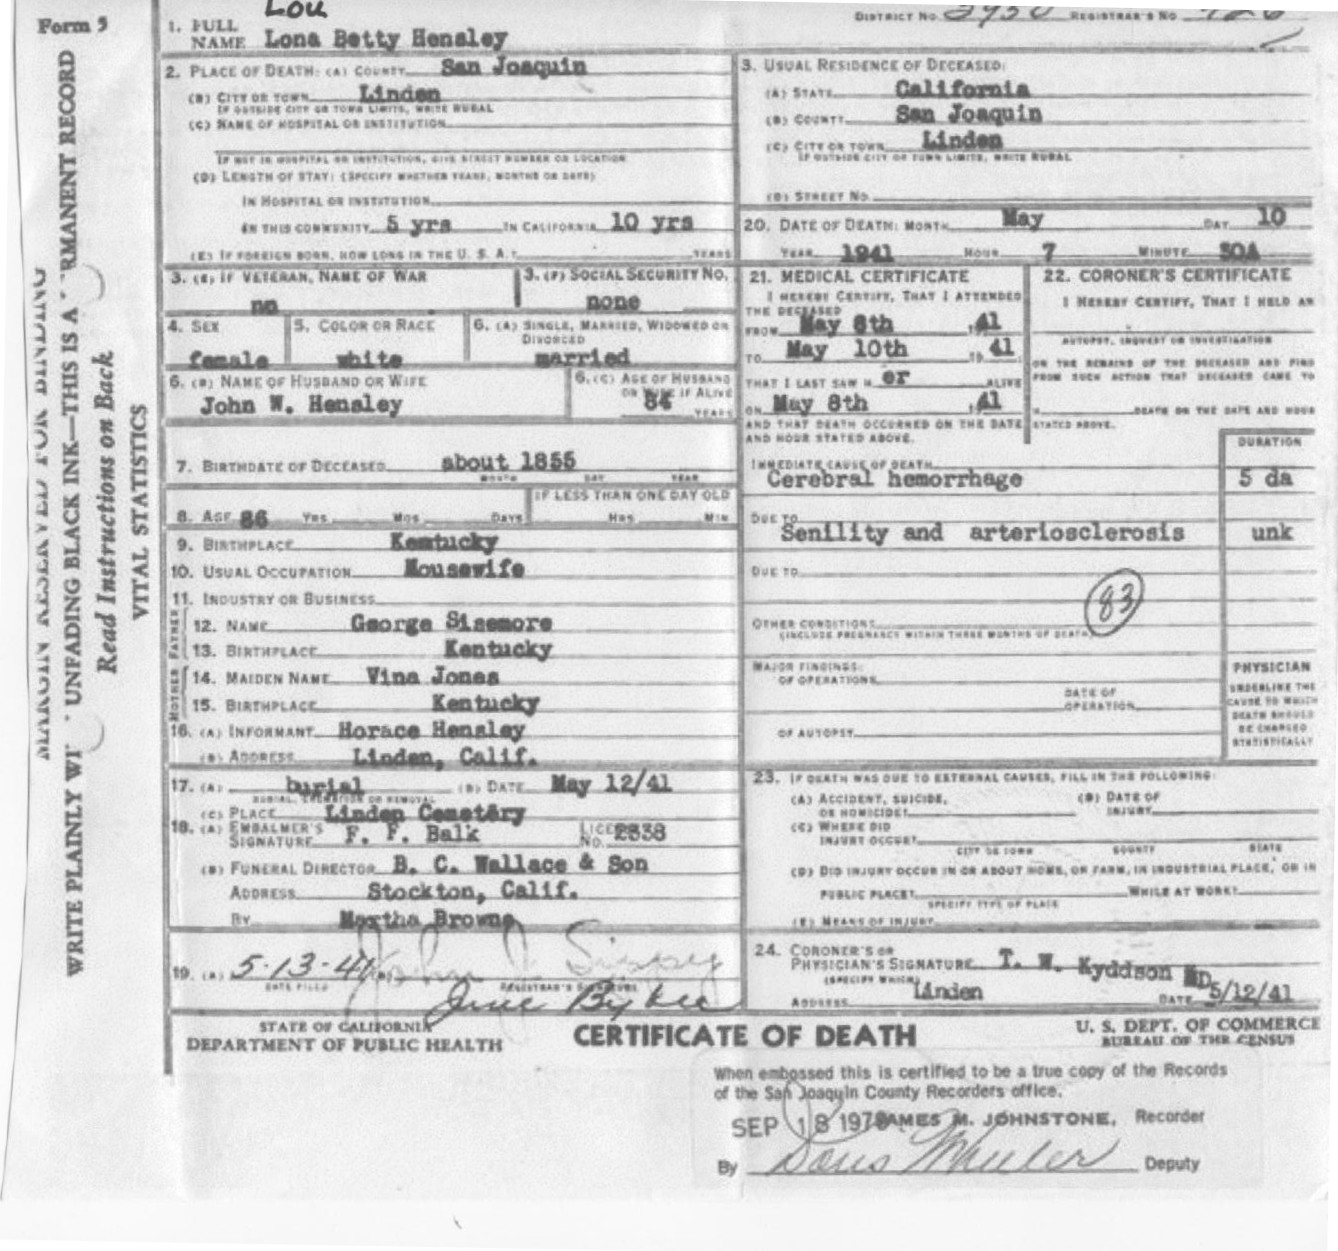 Form 5
MARGIN RESERVED FOR BINDING
WRITE PLAINLY UNFADING BLACK INK—THIS IS A RMANENT RECORD
Read Instructions on Back
VITAL STATISTICS
Lou
DISTRICT NO. REGISTRAR'S NO.
1. FULL NAME Lona Betty Hensley
2. PLACE OF DEATH: (A) COUNTY San Joaquin
(B) CITY OR TOWN Linden
IF OUTSIDE CITY OR TOWN LIMITS, WRITE RURAL
(C) NAME OF HOSPITAL OR INSTITUTION
IF NOT IN HOSPITAL OR INSTITUTION, GIVE STREET NUMBER OR LOCATION
(D) LENGTH OF STAY: (SPECIFY WHETHER YEARS, MONTHS OR DAYS)
IN HOSPITAL OR INSTITUTION
IN THIS COMMUNITY 5 yrs IN CALIFORNIA 10 yrs
(E) IF FOREIGN BORN, HOW LONG IN THE U. S. A.? YEARS
3. USUAL RESIDENCE OF DECEASED:
(A) STATE California
(B) COUNTY San Joaquin
(C) CITY OR TOWN Linden
IF OUTSIDE CITY OR TOWN LIMITS, WRITE RURAL
(D) STREET NO.
20. DATE OF DEATH: MONTH May DAY 10
YEAR 1941 HOUR 7 MINUTE 30A
3. (E) IF VETERAN, NAME OF WAR
no
3. (F) SOCIAL SECURITY NO.
none
4. SEX
female
5. COLOR OR RACE
white
6. (A) SINGLE, MARRIED, WIDOWED OR DIVORCED
married
6. (B) NAME OF HUSBAND OR WIFE
John W. Hensley
6. (C) AGE OF HUSBAND OR WIFE IF ALIVE
84 YEARS
7. BIRTHDATE OF DECEASED about 1855
MONTH DAY YEAR
8. AGE 86 YRS. MOS. DAYS
IF LESS THAN ONE DAY OLD
HRS. MIN.
9. BIRTHPLACE Kentucky
10. USUAL OCCUPATION Housewife
11. INDUSTRY OR BUSINESS
FATHER
12. NAME George Sizemore
13. BIRTHPLACE Kentucky
MOTHER
14. MAIDEN NAME Vina Jones
15. BIRTHPLACE Kentucky
16. (A) INFORMANT Horace Hensley
(B) ADDRESS Linden, Calif.
17. (A) burial (B) DATE May 12/41
BURIAL, CREMATION OR REMOVAL
(C) PLACE Linden Cemetery
18. (A) EMBALMER'S SIGNATURE F. F. Balk LICENSE NO. 2338
(B) FUNERAL DIRECTOR B. C. Wallace & Son
ADDRESS Stockton, Calif.
BY Martha Browne
19. (A) 5-13-41 (B) John J Sippey
DATE FILED REGISTRAR'S SIGNATURE
21. MEDICAL CERTIFICATE
I HEREBY CERTIFY, THAT I ATTENDED
THE DECEASED
FROM May 8th 41
TO May 10th 19 41
THAT I LAST SAW H er ALIVE
ON May 8th 41
AND THAT DEATH OCCURRED ON THE DATE
AND HOUR STATED ABOVE.
22. CORONER'S CERTIFICATE
I HEREBY CERTIFY, THAT I HELD AN
AUTOPSY, INQUEST OR INVESTIGATION
ON THE REMAINS OF THE DECEASED AND FIND
FROM SUCH ACTION THAT DECEASED CAME TO
H DEATH ON THE DATE AND HOUR
STATED ABOVE.
DURATION
IMMEDIATE CAUSE OF DEATH
Cerebral hemorrhage 5 da
DUE TO
Senility and arteriosclerosis unk
DUE TO
83
OTHER CONDITIONS
(INCLUDE PREGNANCY WITHIN THREE MONTHS OF DEATH)
MAJOR FINDINGS:
OF OPERATIONS
DATE OF OPERATION
OF AUTOPSY
PHYSICIAN
UNDERLINE THE
CAUSE TO WHICH
DEATH SHOULD
BE CHARGED
STATISTICALLY
23. IF DEATH WAS DUE TO EXTERNAL CAUSES, FILL IN THE FOLLOWING:
(A) ACCIDENT, SUICIDE, OR HOMICIDE? (B) DATE OF INJURY
(C) WHERE DID INJURY OCCUR?
CITY OR TOWN COUNTY STATE
(D) DID INJURY OCCUR IN OR ABOUT HOME, OR FARM, IN INDUSTRIAL PLACE, OR IN
PUBLIC PLACE? WHILE AT WORK?
SPECIFY TYPE OF PLACE
(E) MEANS OF INJURY
24. CORONER'S OR PHYSICIAN'S SIGNATURE T. W. Kyddson MD
(SPECIFY WHICH)
ADDRESS Linden DATE 5/12/41
STATE OF CALIFORNIA
DEPARTMENT OF PUBLIC HEALTH
CERTIFICATE OF DEATH
U. S. DEPT. OF COMMERCE
BUREAU OF THE CENSUS
When embossed this is certified to be a true copy of the Records
of the San Joaquin County Recorders office.
SEP 18 197 JAMES M. JOHNSTONE, Recorder
By Doris Wheeler Deputy